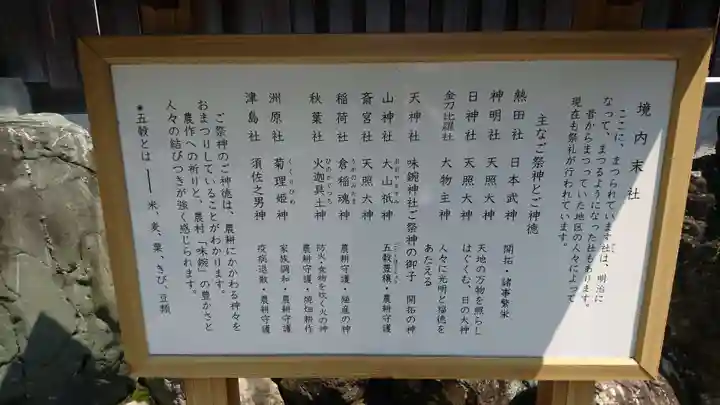 境内末社
ここに、まつられています社は、明治に
なって、まつるようになった社もあります。
昔からまつっていた地区の人々によって
現在も祭礼が行われています。
主なご祭神とご神徳
熱田社 日本武神 開拓・諸事繁栄
神明社 天照大神
日神社 天照大神 天地の万物を照らし
はぐくむ、日の大神
金刀比羅社 大物主神 人々に光明と福徳を
あたえる
天神社 味鋺神社ご祭神の御子 開拓の神
山神社 大山祇神 五穀豊穣・農耕守護
斎宮社 天照大神
稲荷社 倉稲魂神 農耕守護・殖産の神
秋葉社 火迦具土神 防火・食物を炊く火の神
農耕守護・焼畑耕作
洲原社 菊理姫神 家族調和・農耕守護
津島社 須佐之男神 疫病退散・農耕守護
ご祭神のご神徳は、農耕にかかわる神々を
おまつりしていることがわかります。
農作への祈りと、農村「味鋺」の豊かさと
人々の結びつきが強く感じられます。
※五穀とは――米、麦、粟、きび、豆類